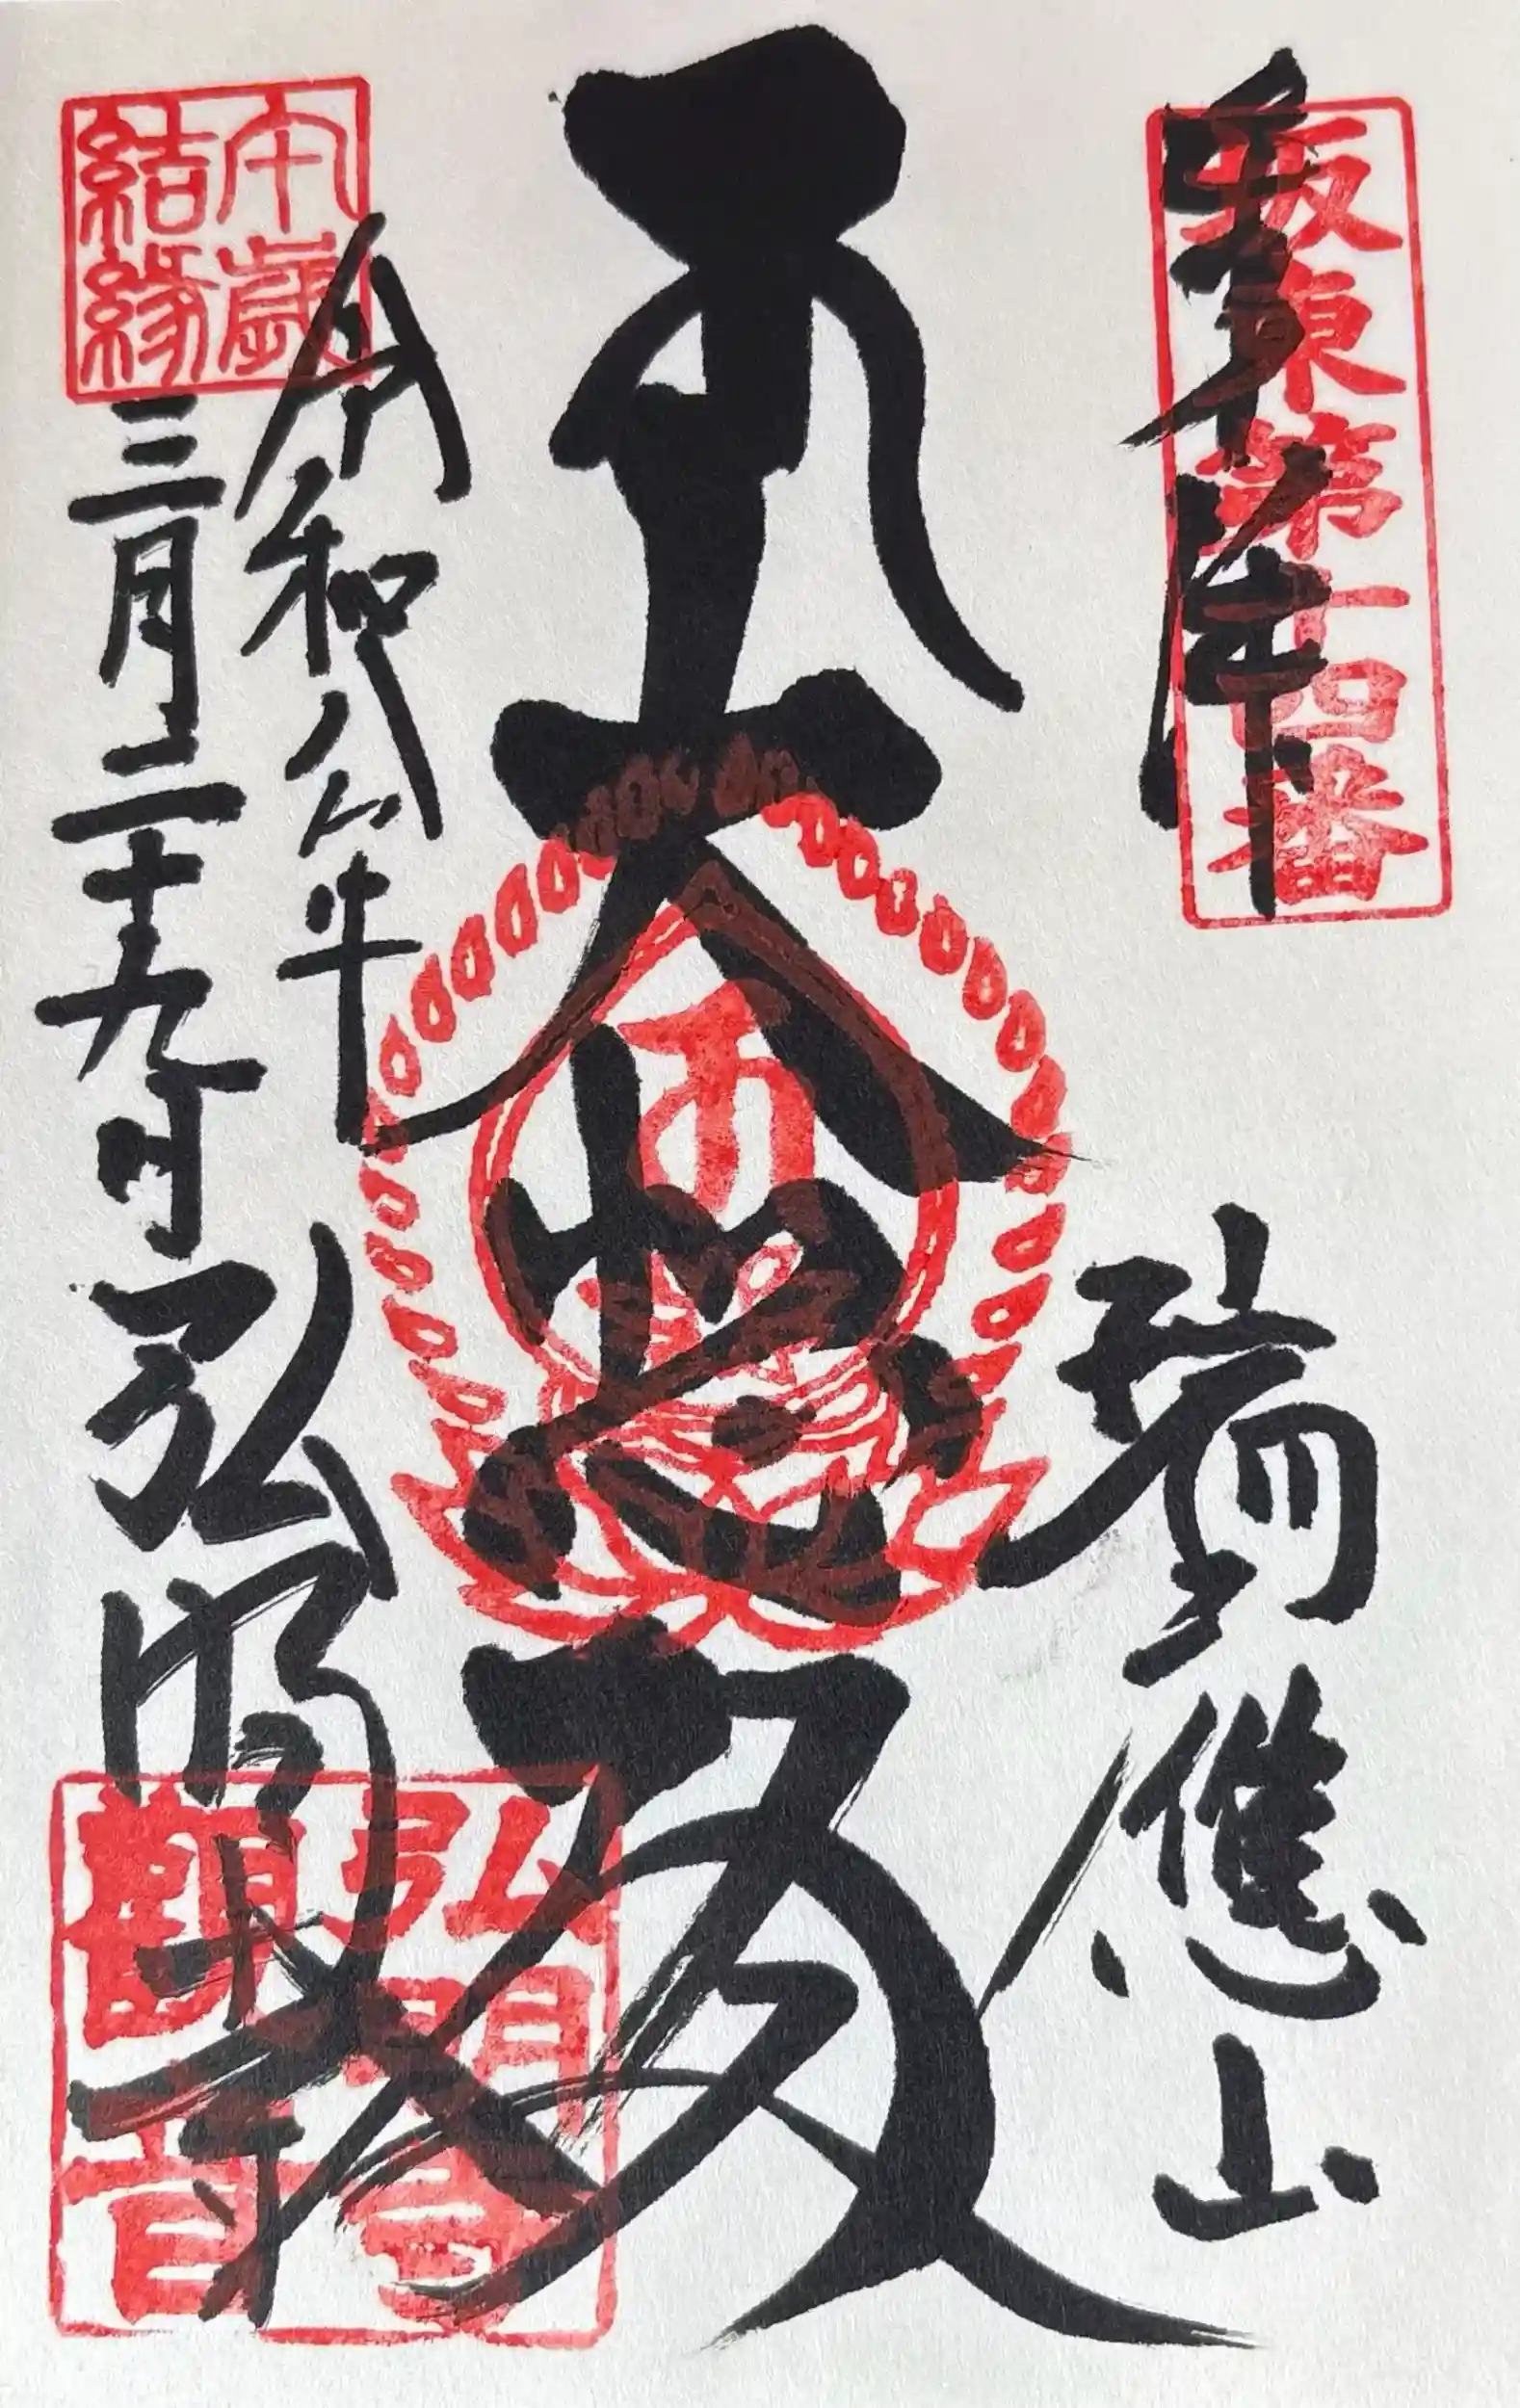 奉拝
坂東第十四番
瑞應山
大悲殿
午歳結縁
令和八年
三月二十九日
弘明寺
弘明寺
觀音